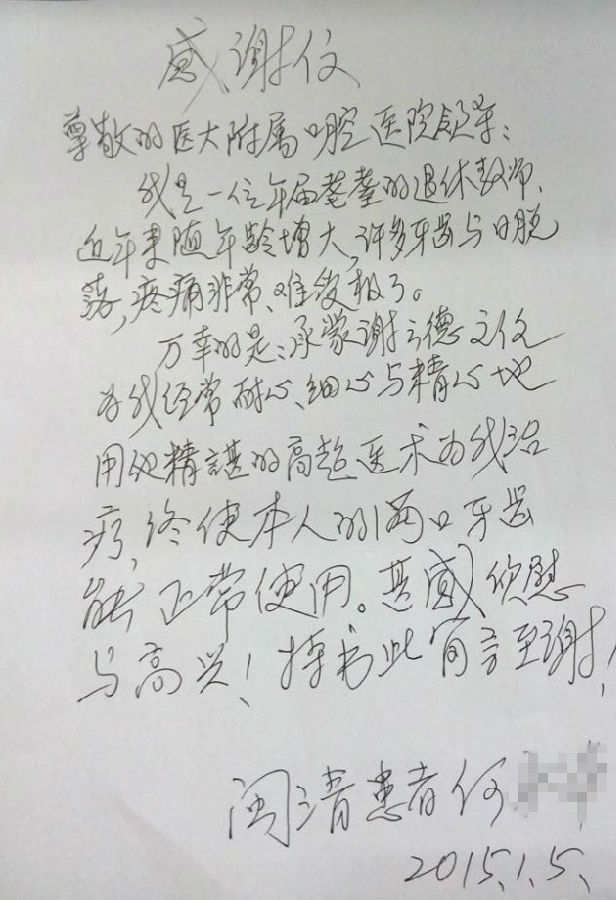 感谢信
尊敬的医大附属口腔医院领导：
我是一位年届耄耋的退休教师、
近年来随年龄增大，许多牙齿与日脱
落，疼痛非常、难受极了。
万幸的是：承蒙谢云德主任
为我经常耐心、细心与精心地
用他精谌的高超医术为我治
疗，终使本人的满口牙齿
能正常使用。甚感欣慰
与高兴！特书此简言至谢！
闽清患者何
2015.1.5.